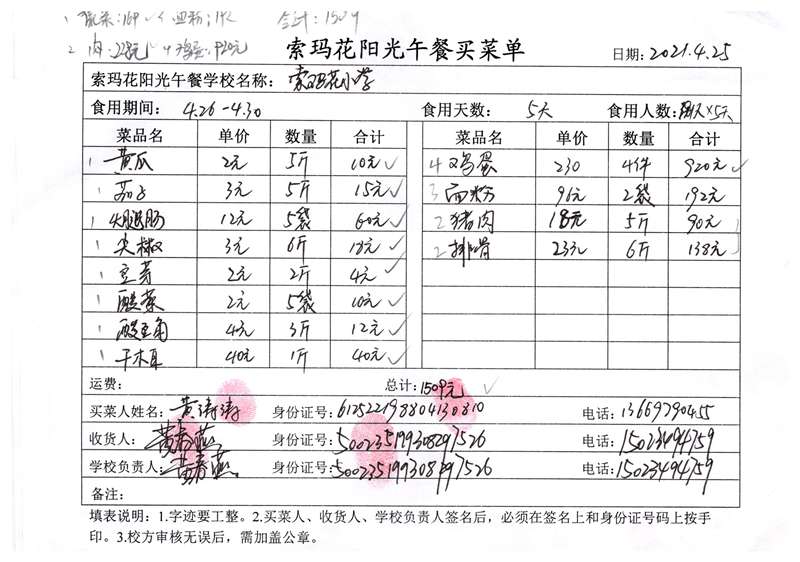 1 蔬菜:169 3 面粉:192 合计:1509
2 肉:228元 4 鸡蛋:920元
索玛花阳光午餐买菜单
日期:2021.4.25
索玛花阳光午餐学校名称:索玛花小学
食用期间:4.26-4.30 食用天数:5天 食用人数: ×5天
菜品名 单价 数量 合计 菜品名 单价 数量 合计
1 黄瓜 2元 5斤 10元 ✓ 4 鸡蛋 230 4件 920元 ✓
1 茄子 3元 5斤 15元 ✓ 3 面粉 96元 2袋 192元
1 火腿肠 12元 5袋 60元 ✓ 2 猪肉 18元 5斤 90元
1 尖椒 3元 6斤 18元 ✓ 2 排骨 23元 6斤 138元
1 豆芽 2元 2斤 4元 ✓
1 酸菜 2元 5袋 10元 ✓
1 酸豆角 4元 3斤 12元 ✓
1 干木耳 40元 1斤 40元 ✓
运费: 总计:1509元 ✓
买菜人姓名:黄涛涛 身份证号:612522198804130810 电话:13669790455
收货人:黄春燕 身份证号:500235199308297526 电话:15023494759
学校负责人:黄春燕 身份证号:500235199308297526 电话:15023494759
备注:
填表说明:1.字迹要工整。2.买菜人、收货人、学校负责人签名后,必须在签名上和身份证号码上按手
印。3.校方审核无误后,需加盖公章。